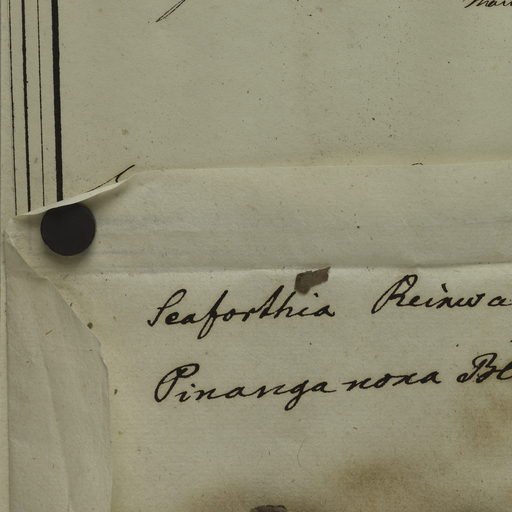 Seaforthia Reinwa
Pinanga noxa Bl